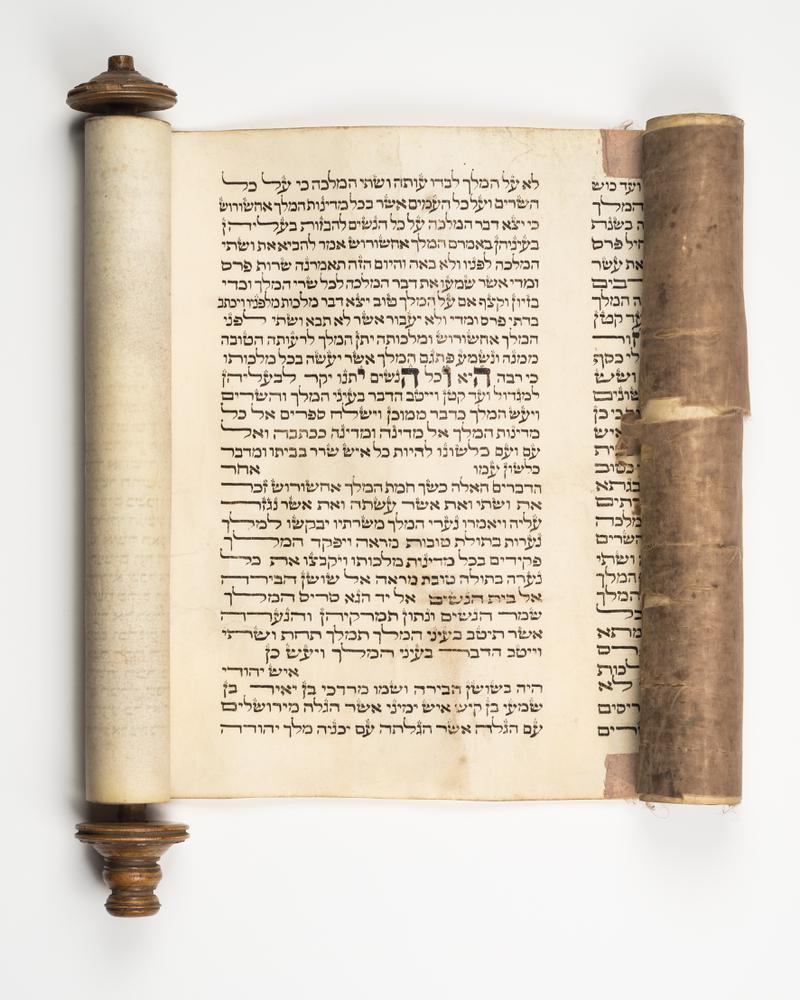 ועד כוש
המלך
בשנת
חיל פרס
את עשר
המלך
עד קטן
כסף
ושש
איש
בגתא
השרים
ושתי
המלך
המלך
כל
לא
לא על המלך לבדו עותה ושתי המלכה כי על כל
השרים ועל כל העמים אשר בכל מדינות המלך אחשורוש
כי יצא דבר המלכה על כל הנשים להבזות בעליהן
בעיניהן באמרם המלך אחשורוש אמר להביא את ושתי
המלכה לפניו ולא באה והיום הזה תאמרנה שרות פרס
ומדי אשר שמעו את דבר המלכה לכל שרי המלך וכדי
בזיון וקצף אם על המלך טוב יצא דבר מלכות מלפניו ויכתב
בדתי פרס ומדי ולא יעבור אשר לא תבא ושתי לפני
המלך אחשורוש ומלכותה יתן המלך לרעותה הטובה
ממנה ונשמע פתגם המלך אשר יעשה בכל מלכותו
כי רבה היא וכל הנשים יתנו יקר לבעליהן
למגדול ועד קטן וייטב הדבר בעיני המלך והשרים
ויעש המלך כדבר ממוכן וישלח ספרים אל כל
מדינות המלך אל מדינה ומדינה ככתבה ואל
עם ועם כלשונו להיות כל איש שרר בביתו ומדבר
כלשון עמו אחר
הדברים האלה כשך חמת המלך אחשורוש זכר
את ושתי ואת אשר עשתה ואת אשר נגזר
עליה ויאמרו נערי המלך משרתיו יבקשו למלך
נערות בתולות טובות מראה ויפקד המלך
פקידים בכל מדינות מלכותו ויקבצו את כל
נערה בתולה טובת מראה אל שושן הבירה
אל בית הנשים אל יד הגא סריס המלך
שמר הנשים ונתון תמרקיהן והנערה
אשר תיטב בעיני המלך תמלך תחת ושתי
וייטב הדבר בעיני המלך ויעש כן
איש יהודי
היה בשושן הבירה ושמו מרדכי בן יאיר בן
שמעי בן קיש איש ימיני אשר הגלה מירושלים
עם הגלה אשר הגלתה עם יכניה מלך יהודה